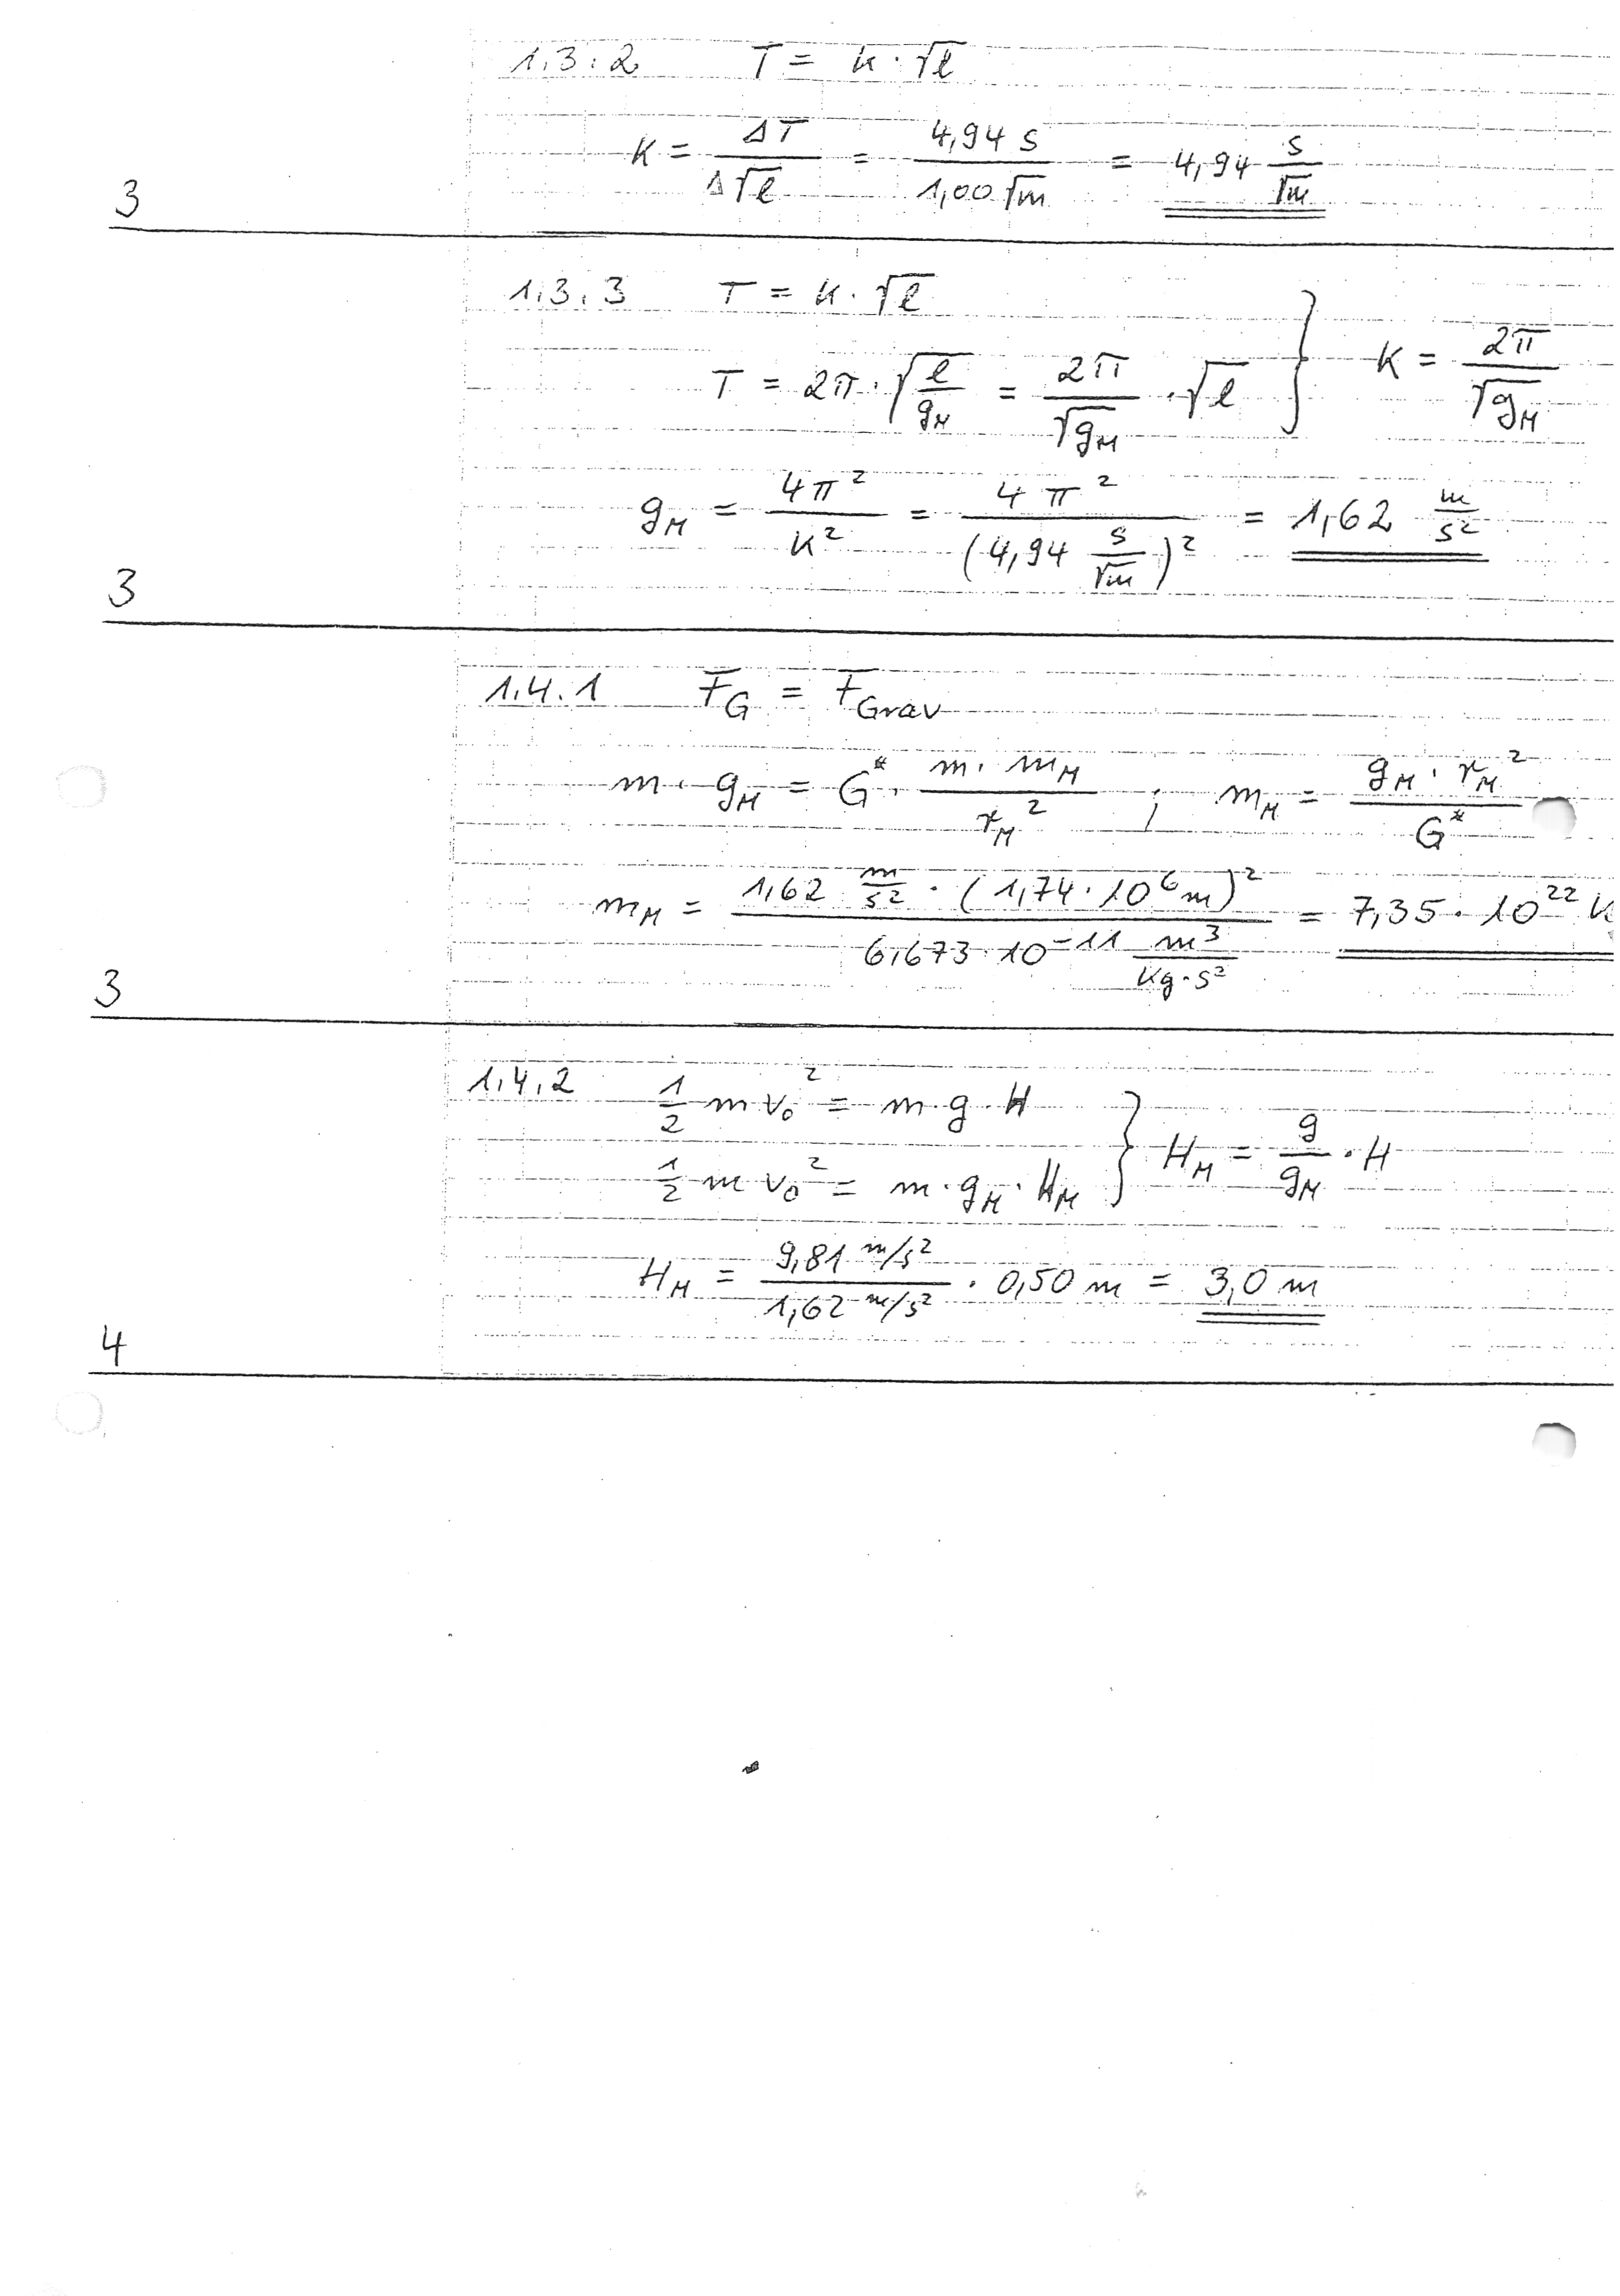 1.3.2 T = k · √l
k = ΔT / Δ√l = 4,94 s / 1,00 √m = 4,94 s/√m
3
1.3.3 T = k · √l
T = 2π · √(l/g_M) = 2π/√g_M · √l } k = 2π/√g_M
g_M = 4π²/k² = 4π²/(4,94 s/√m)² = 1,62 m/s²
3
1.4.1 F_G = F_Grav
m · g_M = G* · m · m_M / r_M² ; m_M = g_M · r_M² / G*
m_M = 1,62 m/s² · (1,74 · 10⁶ m)² / 6,673 · 10⁻¹¹ m³/kg·s² = 7,35 · 10²² k
3
1.4.2 1/2 m v₀² = m · g · H
1/2 m v₀² = m · g_M · H_M } H_M = g/g_M · H
H_M = 9,81 m/s² / 1,62 m/s² · 0,50 m = 3,0 m
4